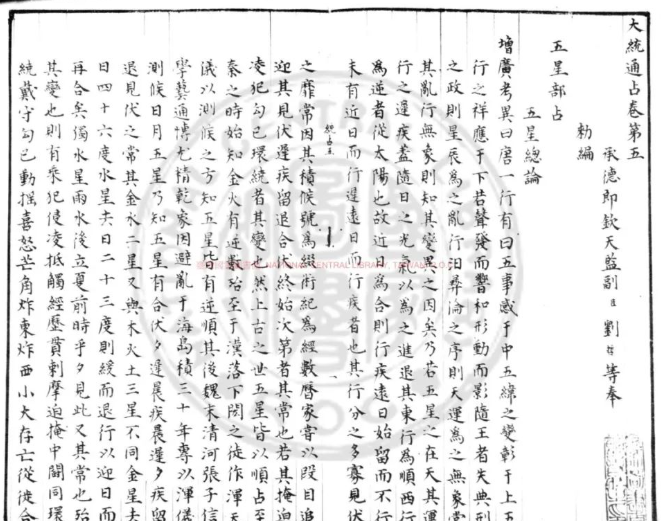 大統通占卷第五
承德郎欽天監副臣劉哲等奉
勑編
五星部占
五星總論
增廣考異曰唐一行有曰五事感于中五緯之變彰于上五
行之祥應于下若聲發而響和形動而影隨王者失典刑
之政則星辰為之亂行汨彝倫之序則天運為之無象當
其亂行無象則知其變異之因矣乃若五星之在天其運
行之遲疾蓋隨日之光氣以為之進退其東行為順西行
為逆者從太陽也故近日為合則行疾遠日始留而不行
未有近日而行遲遠日而行疾者也其行分之多寡見伏
之靡常因其積候號為綴術紀為經數曆家嘗以段目追
迎其見伏遲疾留退合伏終始次第者其常也若其掩迫
凌犯勾已環繞者其變也然上古之世五星皆以順占至
秦之時始知金火有逆數殆至于漢落下閎之徒作渾天
儀以測候之方知五星皆有逆順其後魏末清河張子信
學藝通博尤精乾象因避亂于海島積三十年專以渾儀
測候日月五星乃知五星有合伏夕遲晨疾晨遲夕疾留
退見伏之常其金水二星又與木火土三星不同金星去
日四十六度水星去日二十三度則緩而退行以迎日而
再合矣獨水星雨水後立夏前時乎夕見此又其常也殆
其變也則有乘犯侵凌抵觸經歷貫刺摩迫掩中關同環
繞戴守勾已動搖喜怒芒角炸東炸西小大存亡從徙合
統占五
NATIONAL CENTRAL LIBRARY, TAIWAN, R.O.C.